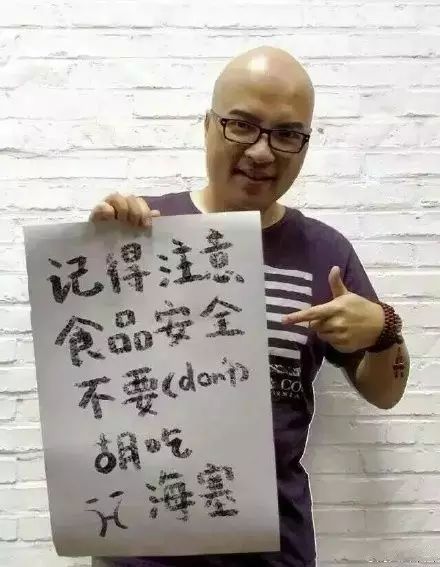 记得注意
食品安全
不要(don't)
胡吃
海塞
CO